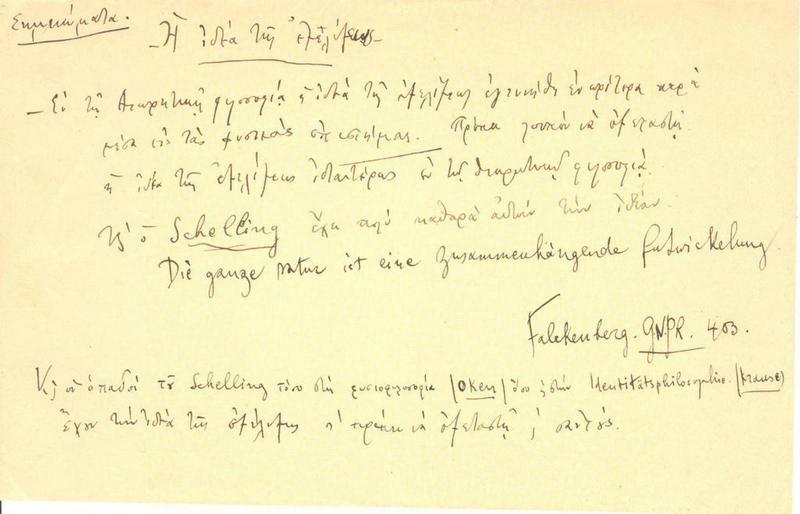 Σημειώματα.
— Ἡ ἰδέα τῆς ἐξελίξεως —
— Ἐν τῇ θεωρητικῇ φιλοσοφίᾳ ἡ ἰδέα τῆς ἐξελίξεως ἐγεννήθη ἐνωρίτερα παρὰ
μέσα εἰς τὰς φυσικὰς ἐπιστήμας. Πρέπει λοιπὸν νὰ ἐξετασθῇ
ἡ ἰδέα τῆς ἐξελίξεως ἰδιαιτέρως ἐν τῇ θεωρητικῇ φιλοσοφίᾳ.
ὁ Schelling ἔχει πολὺ καθαρὰ αὐτὴν τὴν ἰδέαν.
Die ganze Natur ist eine zusammenhängende Entwickelung.
Falckenberg. G.N.Ph. 403.
Κι οἱ ὀπαδοὶ τοῦ Schelling τόσο στὴ φυσιοφιλοσοφία (Oken) ὅσο κι στὴν Identitätsphilosophie (Krause)
ἔχουν τὴν ἰδέα τῆς ἐξελίξης πρέπει νὰ ἐξετασθῇ